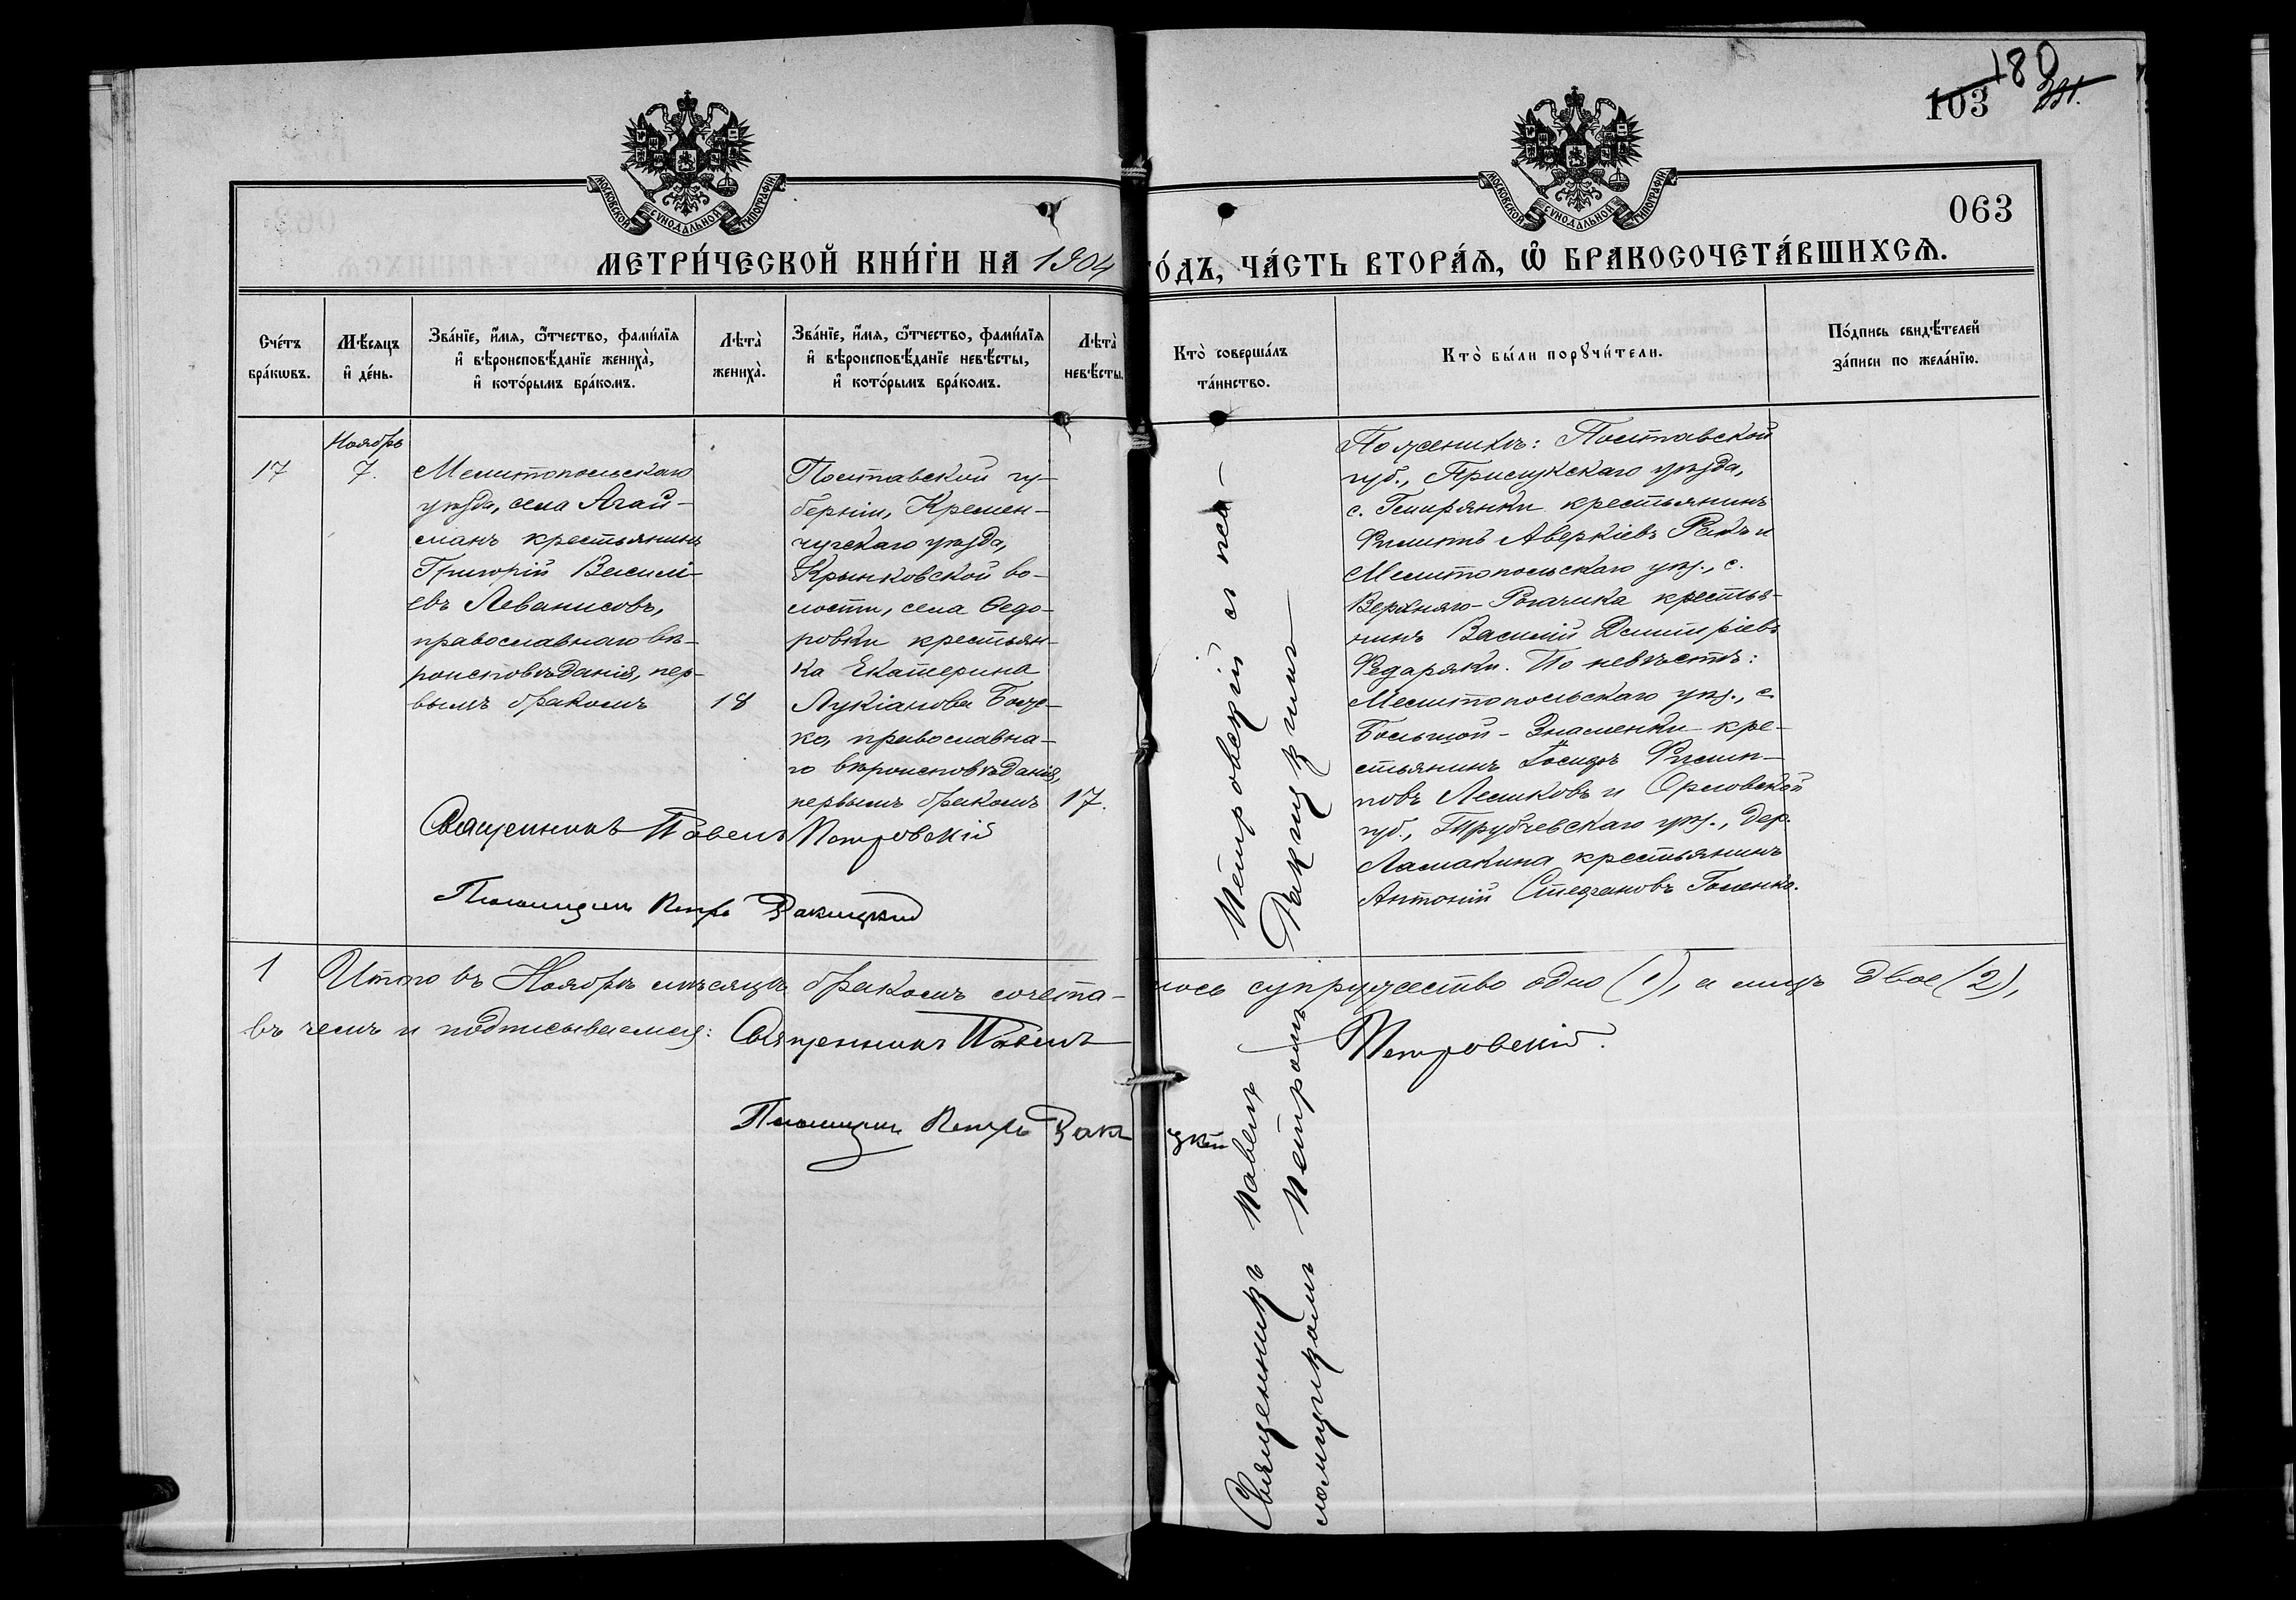 180
103
063
МОСКОВСКОЙ СѴНОДАЛЬНОЙ ТИПОГРАФІИ
МОСКОВСКОЙ СѴНОДАЛЬНОЙ ТИПОГРАФІИ
МЕТРИ́ЧЕСКОЙ КНИ́ГИ НА 1904 ГО́ДЪ, ЧА́СТЬ ВТОРА́Ѧ, Ѡ҆ БРАКОСОЧЕТА́ВШИХСѦ.
Сче́тъ бра́кѡвъ.
Мѣ́сяцъ и҆ де́нь.
Зва́нїе, и҆́мя, ѻ҆́тчество, фами́лїя
и҆ вѣроисповѣ́данїе жениха̀,
и҆ кото́рымъ бра́комъ.
Лѣта̀ жениха̀.
Зва́нїе, и҆́мя, ѻ҆́тчество, фами́лїя
и҆ вѣроисповѣ́данїе невѣ́сты,
и҆ кото́рымъ бра́комъ.
Лѣта̀ невѣ́сты.
Кто̀ соверша́лъ
та́инство.
Кто̀ бы́ли порꙋчи́тели.
По́дпись свидѣ́телей
за́писи по жела́нїю.
17
Ноябрь
7.
Мелитопольскаго
уѣзда, села Агай-
манъ крестьянинъ
Григорій Василі-
евъ Леванисовъ,
православнаго вѣ-
роисповѣданія, пер-
вымъ бракомъ
18
Полтавской гу-
берніи, Кремен-
чугскаго уѣзда,
Крынковской во-
лости, села Ѳедо-
ровки крестьян-
ка Екатерина
Лукіанова Бойе-
ко, православна-
го вѣроисповѣданія,
первымъ бракомъ
17.
Священникъ Павелъ Петровскій съ пса-
ломщикомъ Петромъ Ракицкимъ
По женихѣ: Полтавской
губ., Прилукскаго уѣзда,
с. Гмирянки крестьянинъ
Филиппъ Аверкіевъ и
Мелитопольскаго уѣз., с.
Верхняго-Рогачика крестья-
нинъ Василій Димитріевъ
Федаряки. По невѣстѣ:
Мелитопольскаго уѣз., с.
Большой-Знаменки кре-
стьянинъ Іосифъ Филип-
повъ Лешковъ и Орловской
губ., Трубчевскаго уѣз., дер.
Ламакина крестьянинъ
Антоній Стефановъ Голенко.
Священникъ Павелъ Петровскій
Псаломщикъ Петръ Ракицкій
1 Итого въ Ноябрѣ мѣсяцѣ бракомъ сочета-лось супружество одно (1), а лицъ двое (2),
въ чемъ и подписываемся: Священникъ Павелъ Петровскій.
Псаломщикъ Петръ Ракицкій